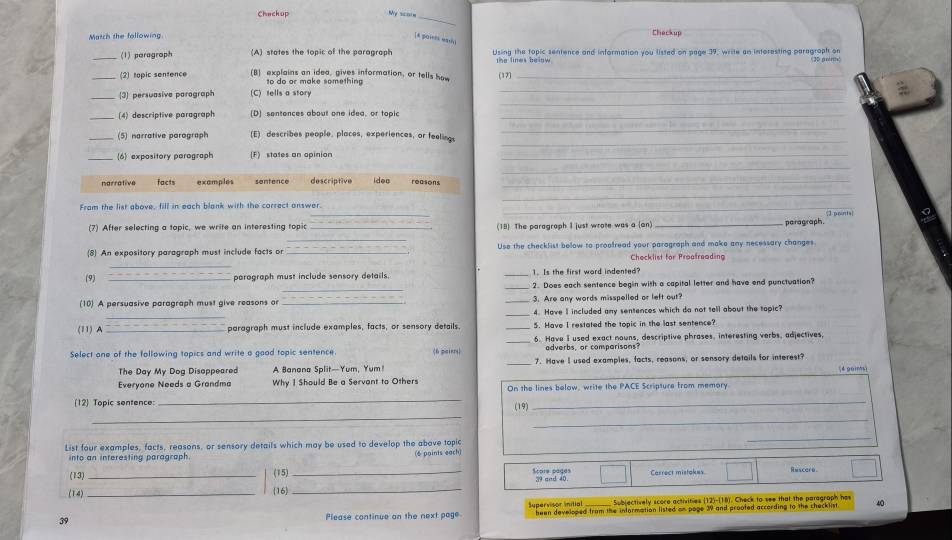 Checkup
My score
Match the following.
(4 points each)
(1) paragraph
(A) states the topic of the paragraph
(2) topic sentence
(B) explains an idea, gives information, or tells how
to do or make something
(3) persuasive paragraph
(C) tells a story
(4) descriptive paragraph
(D) sentences about one idea, or topic
(5) narrative paragraph
(E) describes people, places, experiences, or feelings
(6) expository paragraph
(F) states an opinion
narrative facts examples sentence descriptive idea reasons
From the list above, fill in each blank with the correct answer.
(7) After selecting a topic, we write an interesting topic
(8) An expository paragraph must include facts or
(9) paragraph must include sensory details.
(10) A persuasive paragraph must give reasons or
(11) A paragraph must include examples, facts, or sensory details.
Select one of the following topics and write a good topic sentence.
(6 points)
The Day My Dog Disappeared
A Banana Split—Yum, Yum!
Everyone Needs a Grandma
Why I Should Be a Servant to Others
(12) Topic sentence:
List four examples, facts, reasons, or sensory details which may be used to develop the above topic
into an interesting paragraph.
(6 points each)
(13)
(15)
(14)
(16)
39
Please continue on the next page.
Checkup
Using the topic sentence and information you listed on page 39, write an interesting paragraph on
the lines below.
(20 points)
(17)
(2 points)
(18) The paragraph I just wrote was a (an) paragraph.
Use the checklist below to proofread your paragraph and make any necessary changes.
Checklist for Proofreading
1. Is the first word indented?
2. Does each sentence begin with a capital letter and have end punctuation?
3. Are any words misspelled or left out?
4. Have I included any sentences which do not tell about the topic?
5. Have I restated the topic in the last sentence?
6. Have I used exact nouns, descriptive phrases, interesting verbs, adjectives,
adverbs, or comparisons?
7. Have I used examples, facts, reasons, or sensory details for interest?
(4 points)
On the lines below, write the PACE Scripture from memory.
(19)
Score pages
39 and 40.
Correct mistakes.
Rescore.
Supervisor initial Subjectively score activities (12)-(18). Check to see that the paragraph has
been developed from the information listed on page 39 and proofed according to the checklist.
40